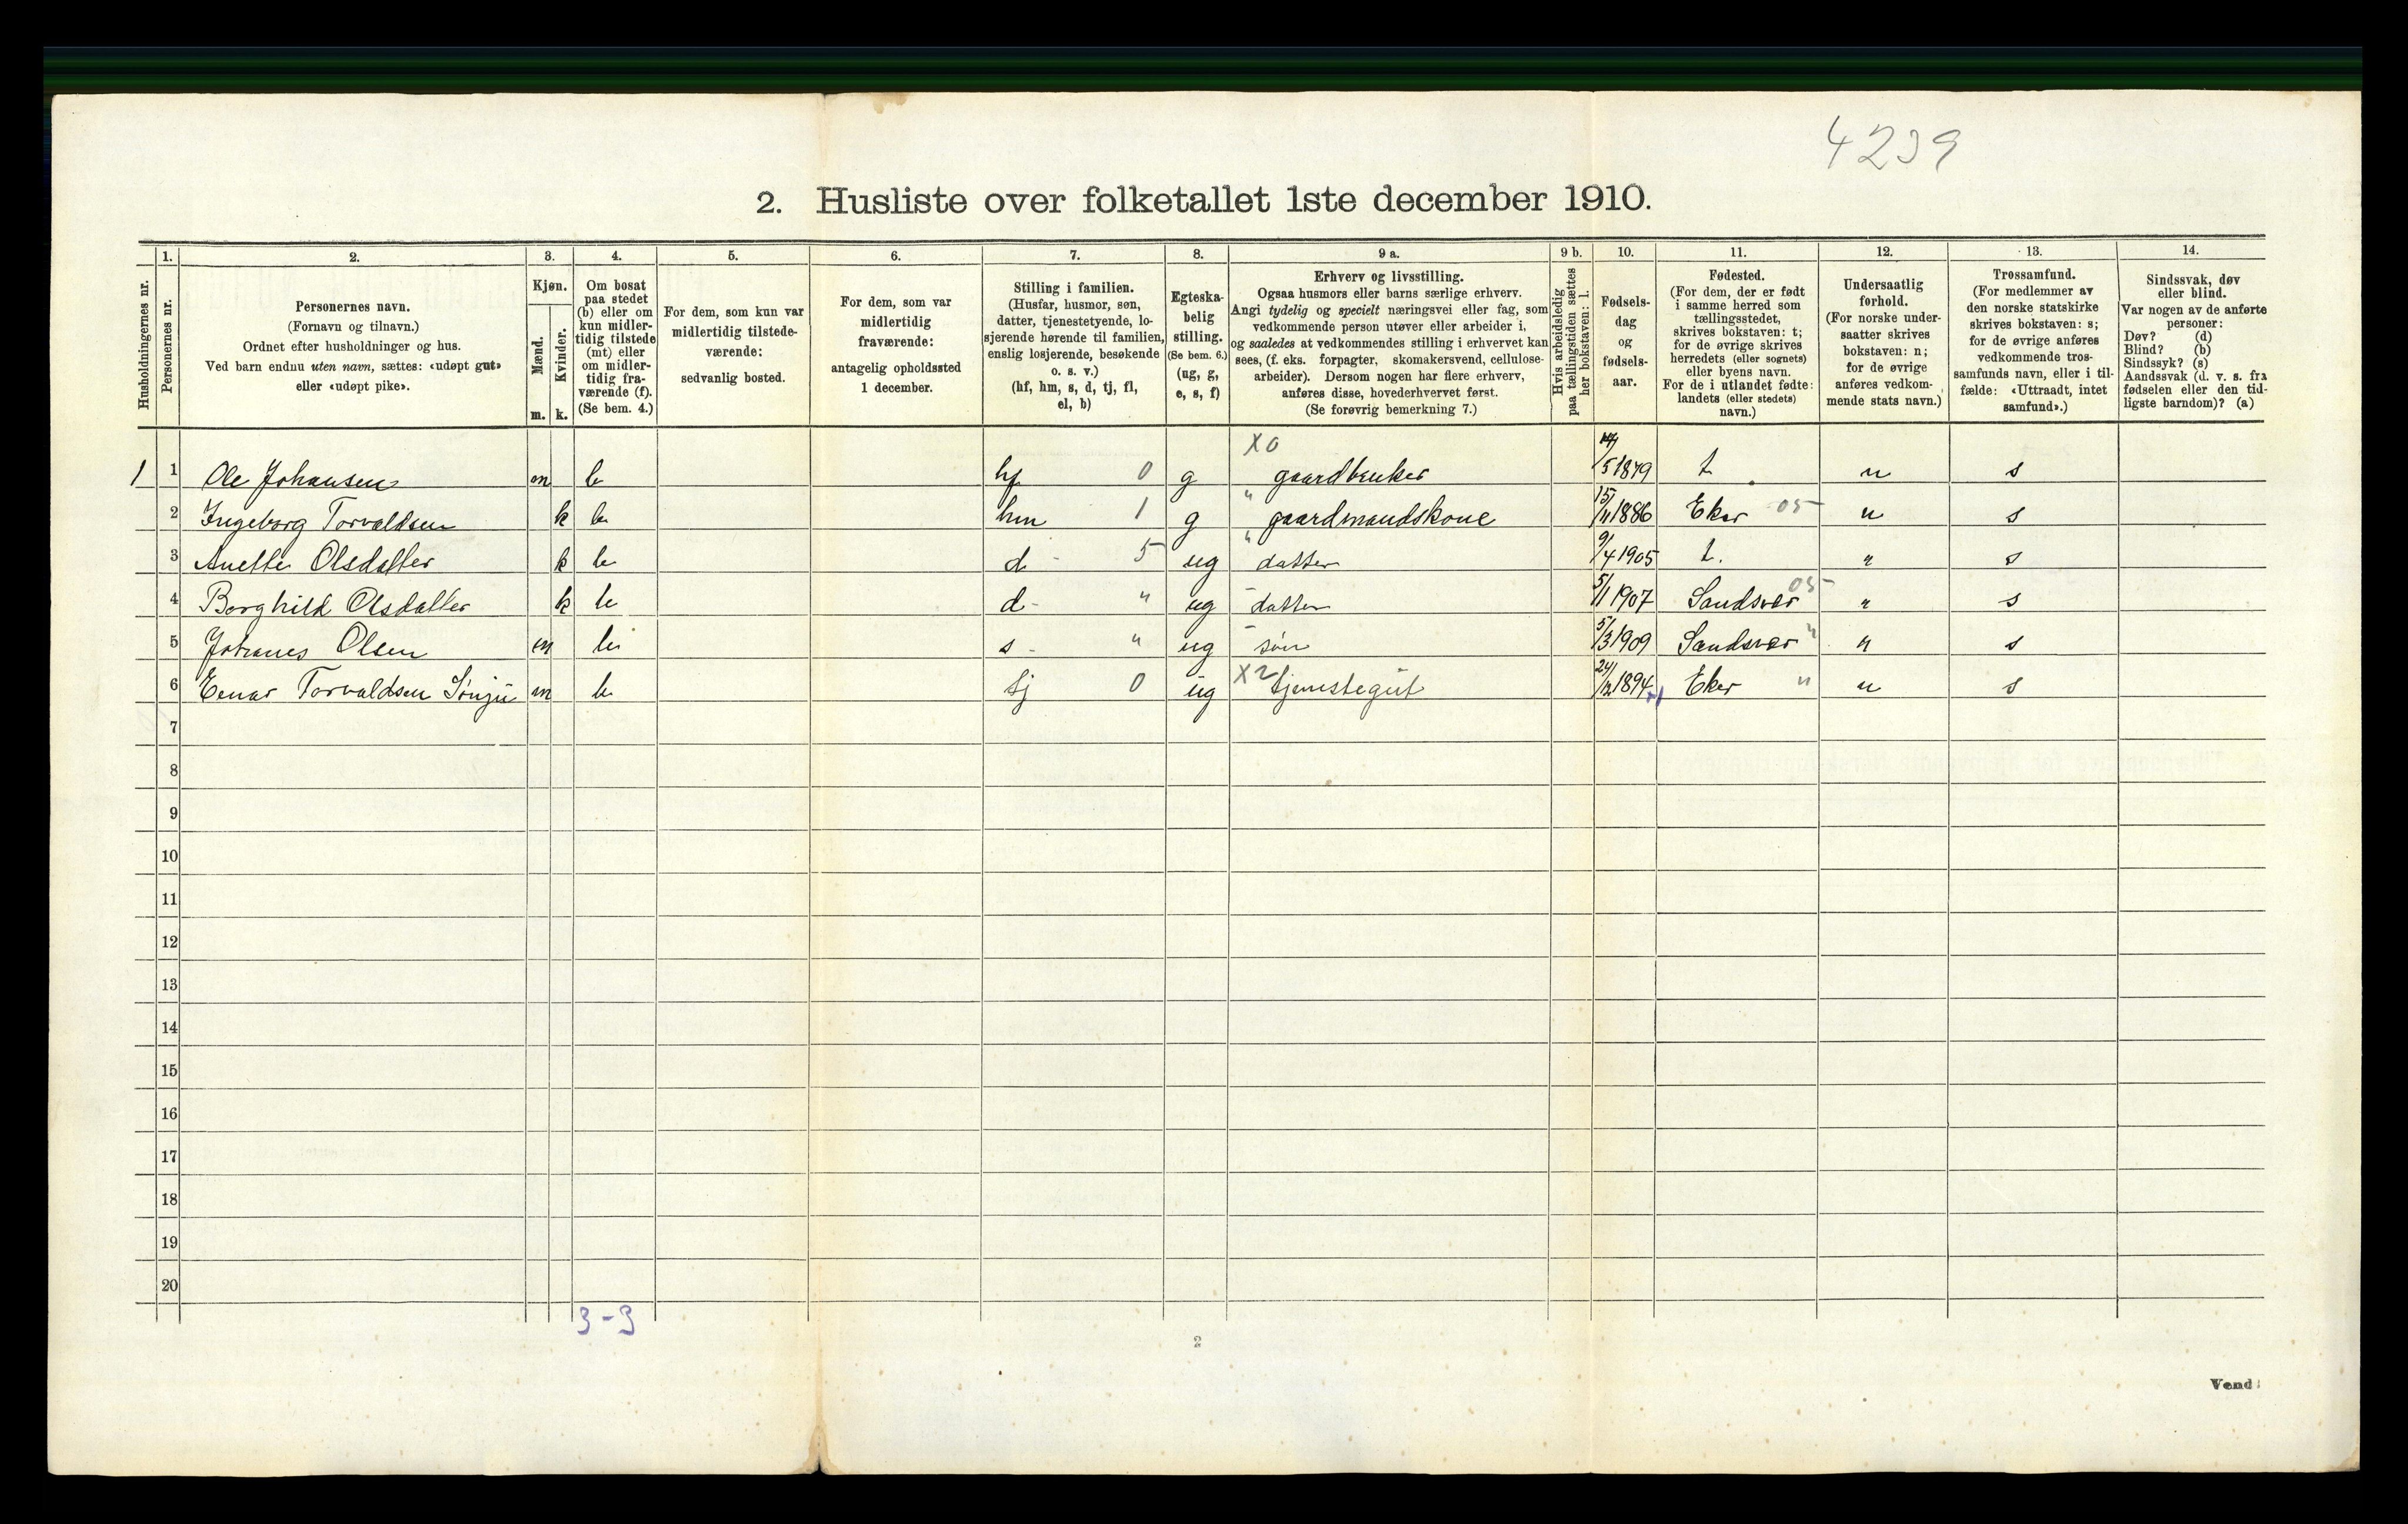 4239
2. Husliste over folketallet 1ste december 1910.
Husholdningernes nr.
1.
Personernes nr.
2.
Personernes navn.
(Fornavn og tilnavn.)
Ordnet efter husholdninger og hus.
Ved barn endnu uten navn, sættes: «udøpt gut»
eller «udøpt pike».
3.
Kjøn.
Mænd.
Kvinder.
m. k.
4.
Om bosat
paa stedet
(b) eller om
kun midler-
tidig tilstede
(mt) eller
om midler-
tidig fra-
værende (f).
(Se bem. 4.)
5.
For dem, som kun var
midlertidig tilstede-
værende:
sedvanlig bosted.
6.
For dem, som var
midlertidig
fraværende:
antagelig opholdssted
1 december.
7.
Stilling i familien.
(Husfar, husmor, søn,
datter, tjenestetyende, lo-
sjerende hørende til familien,
enslig losjerende, besøkende
o. s. v.)
(hf, hm, s, d, tj, fl,
el, b)
8.
Egteska-
belig
stilling.
(Se bem. 6.)
(ug, g,
e, s, f)
9 a.
Erhverv og livsstilling.
Ogsaa husmors eller barns særlige erhverv.
Angi tydelig og specielt næringsvei eller fag, som
vedkommende person utøver eller arbeider i,
og saaledes at vedkommendes stilling i erhvervet kan
sees, (f. eks. forpagter, skomakersvend, cellulose-
arbeider). Dersom nogen har flere erhverv,
anføres disse, hovederhvervet først.
(Se forøvrig bemerkning 7.)
9 b.
Hvis arbeidsledig
paa tællingstiden sættes
her bokstaven: l.
10.
Fødsels-
dag
og
fødsels-
aar.
11.
Fødested.
(For dem, der er født
i samme herred som
tællingsstedet,
skrives bokstaven: t;
for de øvrige skrives
herredets (eller sognets)
eller byens navn.
For de i utlandet fødte:
landets (eller stedets)
navn.)
12.
Undersaatlig
forhold.
(For norske under-
saatter skrives
bokstaven: n;
for de øvrige
anføres vedkom-
mende stats navn.)
13.
Trossamfund.
(For medlemmer av
den norske statskirke
skrives bokstaven: s;
for de øvrige anføres
vedkommende tros-
samfunds navn, eller i til-
fælde: «Uttraadt, intet
samfund».)
14.
Sindssvak, døv
eller blind.
Var nogen av de anførte
personer:
Døv? (d)
Blind? (b)
Sindssyk? (s)
Aandssvak (d. v. s. fra
fødselen eller den tid-
ligste barndom)? (a)
1 1 Ole Johansen m b hf 0 g X0 gaardbruker /5 1879 t. n s
2 Ingeborg Torvaldsen k b hm 1 g " gaardmandskone 15/11 1886 Eker 05 n s
3 Anette Olsdatter k b d - 5 ug " datter 9/4 1905 t. " s
4 Borghild Olsdatter k b d - " ug - datter 5/1 1907 Sandsvær 05 " s
5 Johanes Olsen m b s - " ug - søn 5/3 1909 Sandsvær " " s
6 Einar Torvaldsen m b tj 0 ug X2 tjenstegut 24/12 1894 Eker " n s
7
8
9
10
11
12
13
14
15
16
17
18
19
20
3-3
2
Vend